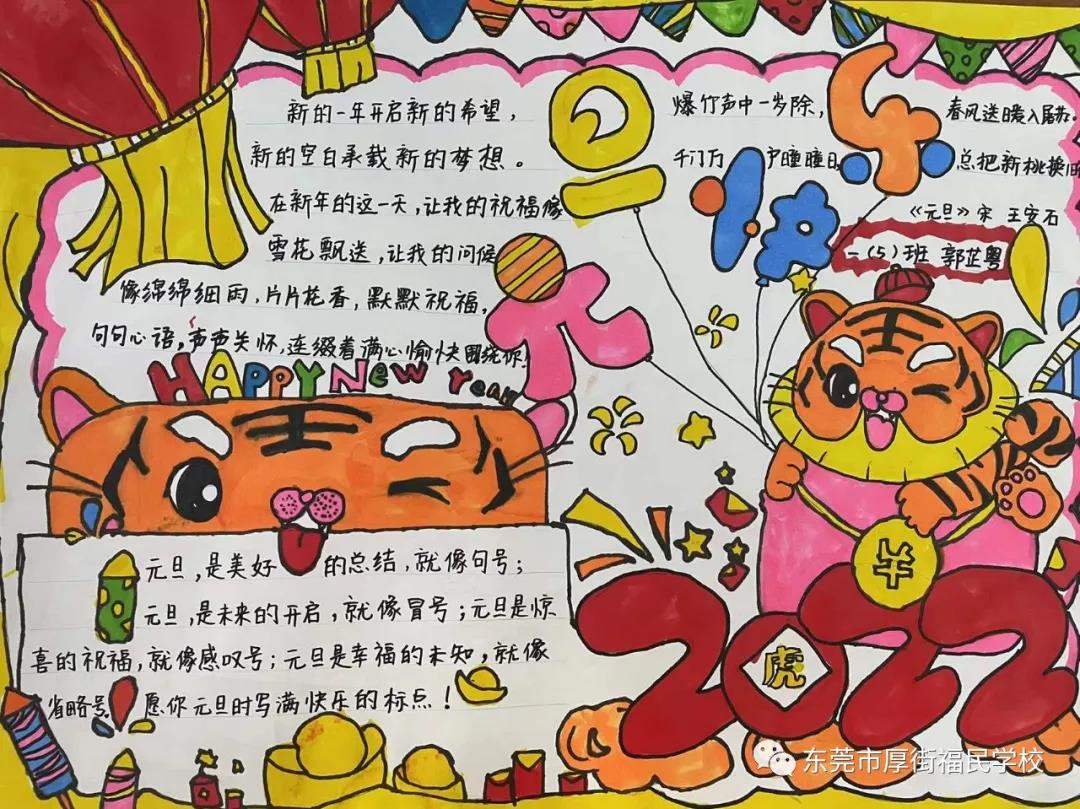 新的一年开启新的希望，
新的空白承载新的梦想。
在新年的这一天，让我的祝福像
雪花飘送，让我的问候
像绵绵细雨，片片花香，默默祝福，
句句心语，声声关怀，连缀着满心愉快围绕你！
HAPPY New Year
元旦快乐
爆竹声中一岁除，
春风送暖入屠苏。
千门万户曈曈日，
总把新桃换旧
《元旦》宋 王安石
一（5）班 郭芷粤
元旦，是美好的总结，就像句号；
元旦，是未来的开启，就像冒号；元旦是惊
喜的祝福，就像感叹号；元旦是幸福的未知，就像
省略号。愿你元旦时写满快乐的标点！
2022
虎
东莞市厚街福民学校